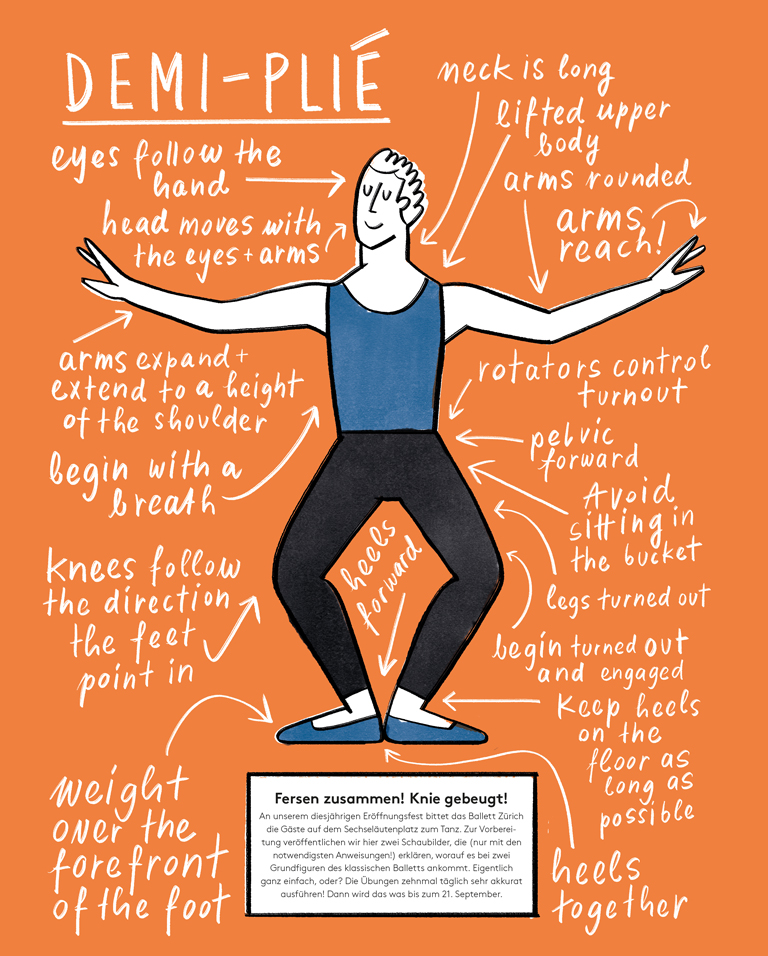 DEMI-PLIÉ
neck is long
lifted upper
body
eyes follow the
hand
arms rounded
head moves with
the eyes + arms
arms
reach!
arms expand +
extend to a height
of the shoulder
rotators control
turnout
begin with a
breath
pelvic
forward
Avoid
sitting in
the bucket
heels
forward
knees follow
the direction
the feet
point in
legs turned out
begin turned out
and engaged
Keep heels
on the
floor as
long as
possible
weight
over the
forefront
of the foot
Fersen zusammen! Knie gebeugt!
An unserem diesjährigen Eröffnungsfest bittet das Ballett Zürich
die Gäste auf dem Sechseläutenplatz zum Tanz. Zur Vorberei-
tung veröffentlichen wir hier zwei Schaubilder, die (nur mit den
notwendigsten Anweisungen!) erklären, worauf es bei zwei
Grundfiguren des klassischen Balletts ankommt. Eigentlich
ganz einfach, oder? Die Übungen zehnmal täglich sehr akkurat
ausführen! Dann wird das was bis zum 21. September.
heels
together